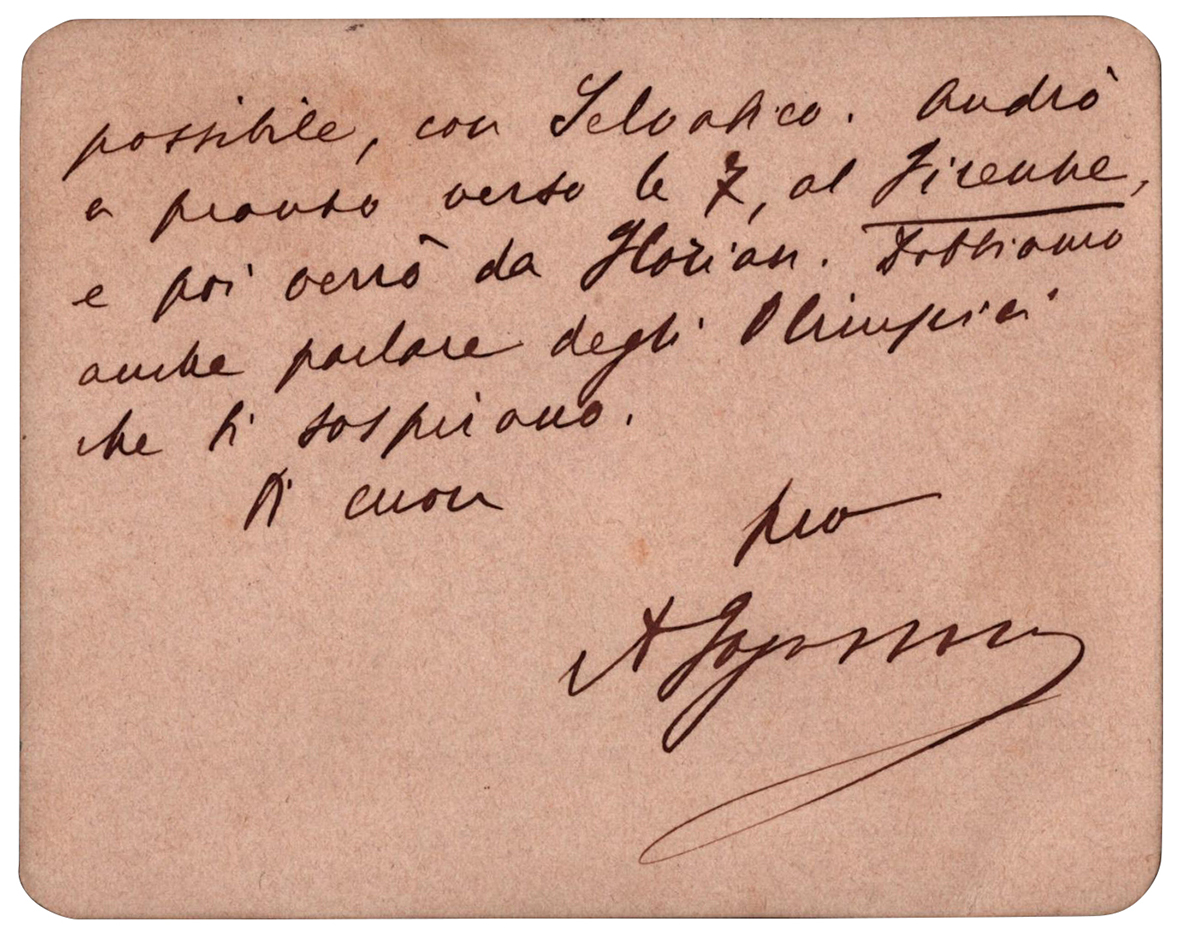 possibile, con Selvatico. Andrò
a pranzo verso le 7, al Firenze,
e poi verrò da Florian. Dobbiamo
anche parlare degli Olimpici
che ti sospirano.
Di cuore
tuo
A Fogazzaro